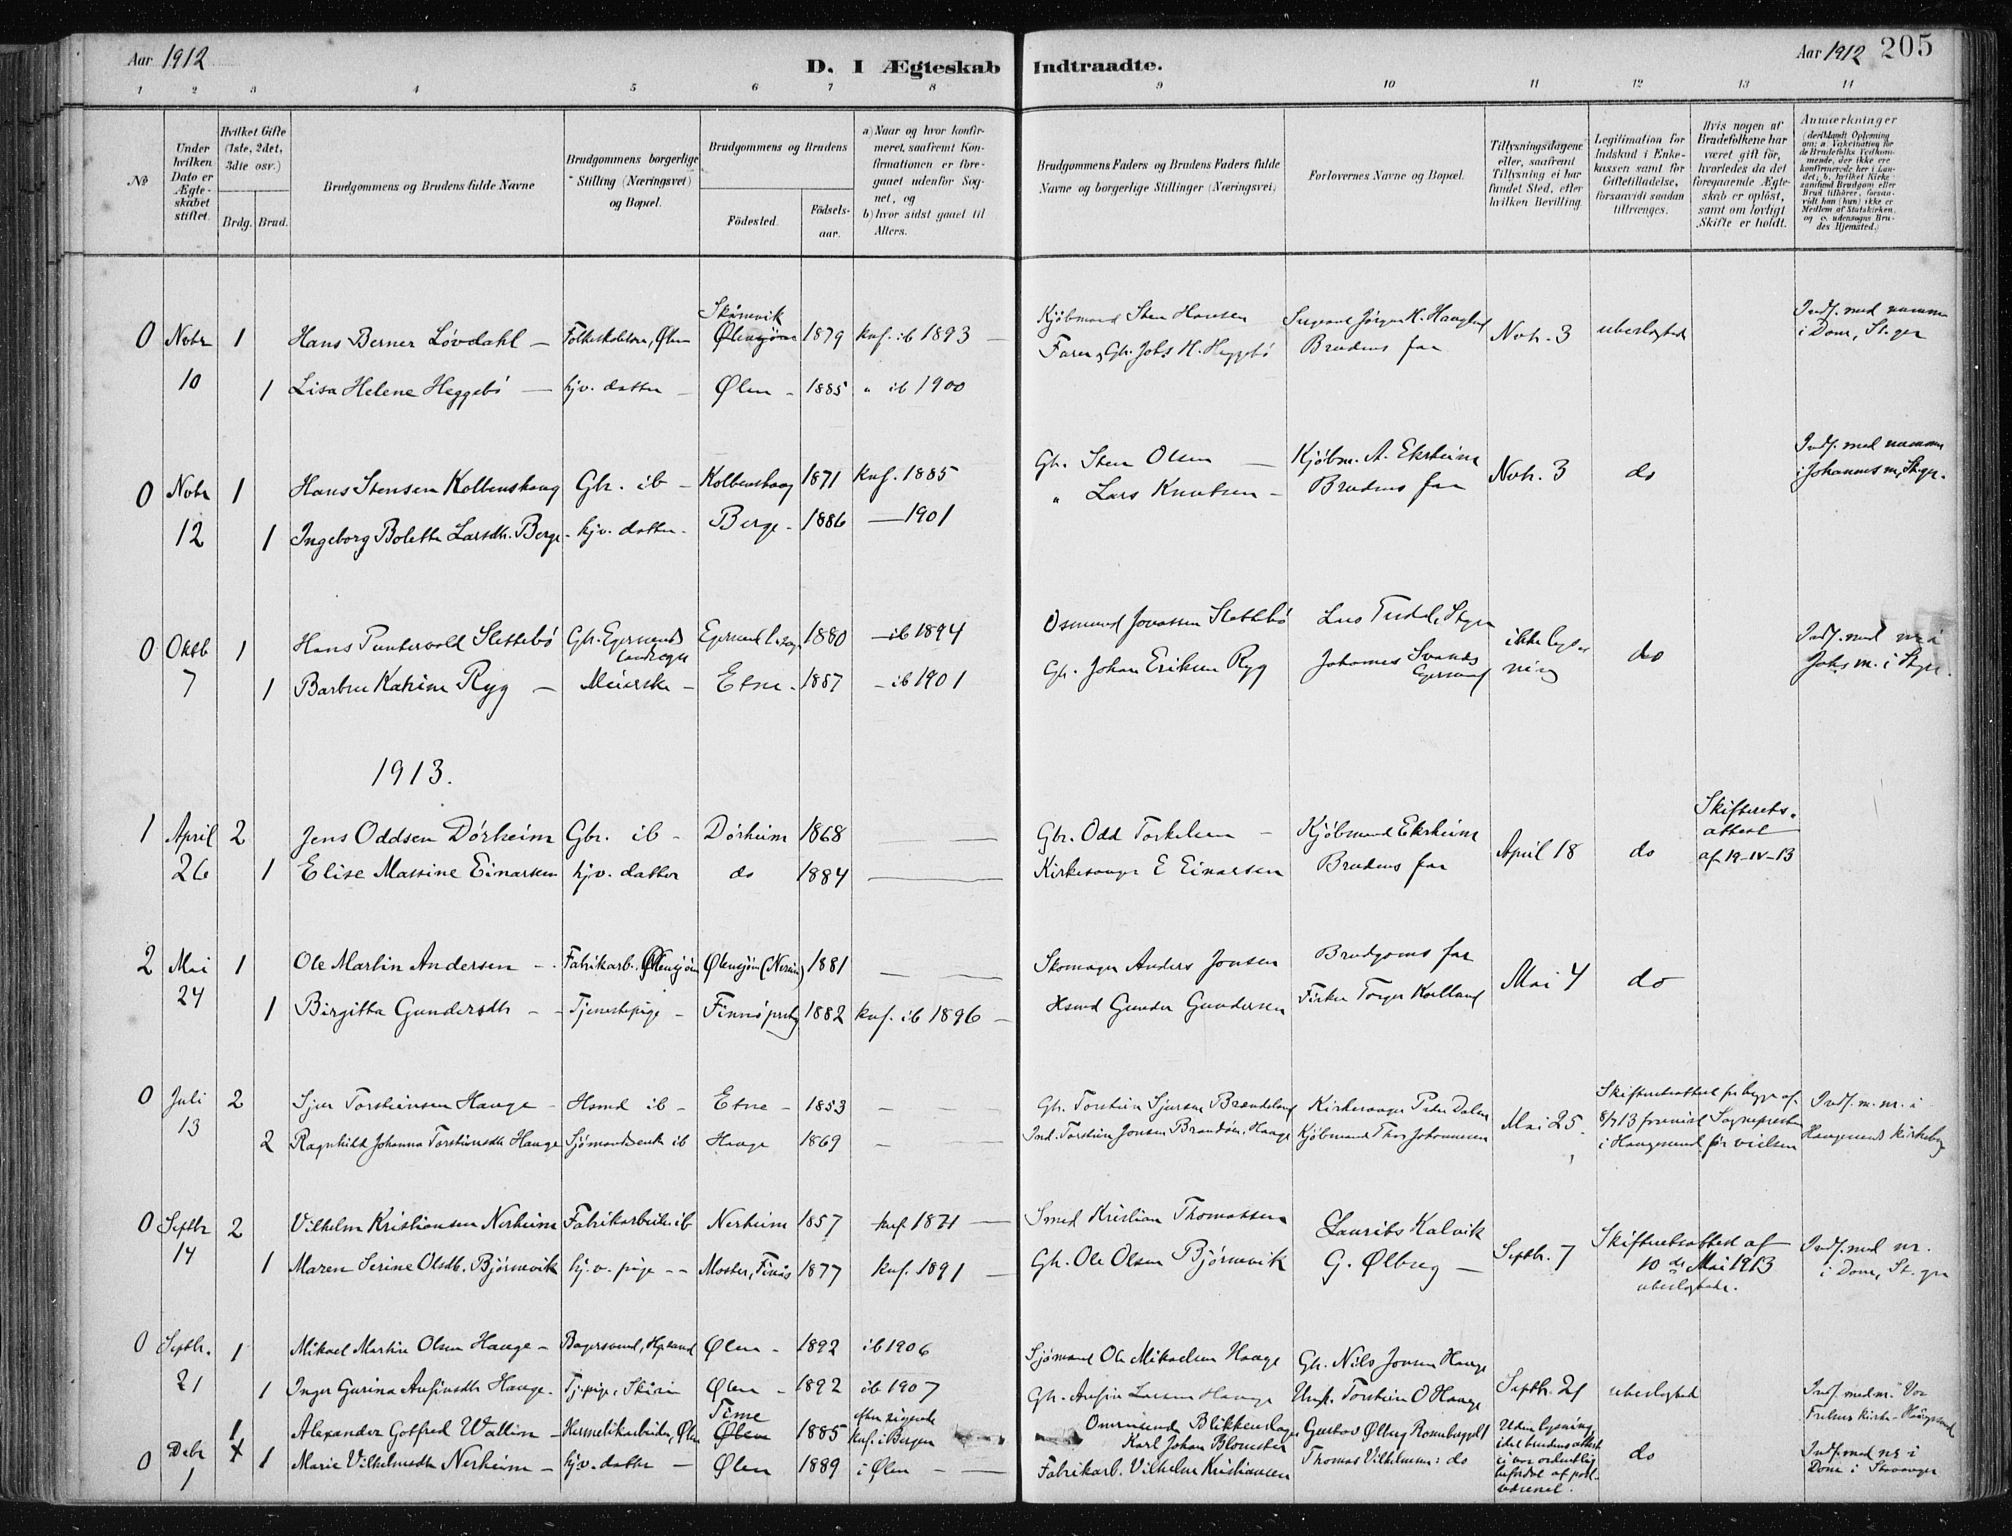 Aar 1912
D. I Ægteskab Indtraadte.
Aar 1912 205
1 2 3 4 5 6 7 8 9 10 11 12 13 14
No
Under hvilken Dato er Ægteskabet stiftet.
Hvilket Gifte (1ste, 2det, 3die osv.)
Brdg. Brud.
Brudgommens og Brudens fulde Navne
Brudgommens borgerlige Stilling (Næringsvei) og Bopæl.
Brudgommens og Brudens
Födested. Födselsaar.
a) Naar og hvor konfirmeret, saafremt Konfirmationen er foregaaet udenfor Sognet, og
b) hvor sidst gaaet til Alters.
Brudgommens Faders og Brudens Faders fulde Navne og borgerlige Stillinger (Næringsvei)
Forlovernes Navne og Bopæl.
Tillysningsdagene eller, saafremt Tillysning ei har fundet Sted, efter hvilken Bevilling.
Legitimation for Indskud i Enkekassen samt for Giftetilladelse, forsaavidt saadan tiltrænges.
Hvis nogen af Brudefolkene har været gift för, hvorledes da det foregaaende Ægteskab er oplöst, samt om lovligt Skifte er holdt.
Anmærkninger (deriblandt Oplysning om: a. Vakcination for de Brudefolks Vedkommende, der ikke ere konfirmerede her i Landet, b. hvilket Kirkesamfund Brudgom eller Brud tilhörer, forsaavidt han (hun) ikke er Medlem af Statskirken, og c. udensogns Brudes Hjemsted.)
0 Novbr 1 Hans Berner Løvdahl — Folkeskolelærer, Ølen Skånevik Ølensjøen 1879 knf. ib 1893 — Kjöbmand Sten Hansen Sergeant Jørgen H. Haugland Nov. 3 ubeslegtede Indf. med nummer i Dom, St.gr
10 1 Lisa Helene Heggebö — hjv. datter — Ølen - 1885 " ib 1900 Farer, Gbr. Johs H. Heggebö Brudens far
0 Novbr 1 Hans Stensen Kolbenshaug Gbr. ib - Kolbenshaug 1871 knf. 1885 Gbr. Sten Olsen — Kjöbm. A. Ekrheim Nov. 3 do Indf. med nummer i Johannes m, St.gr.
12 1 Ingeborg Bolette Larsdtr. Berge - hjv. datter - Berge - 1886 — 1901 " Lars Knutsen - Brudens far
0 Oktb 1 Hans Puntervold Slettebö Gbr. Egersunds Landsogn Egersund l.sogn 1880 — ib 1894 Osmund Jonassen Slettebö Lars Tudal, Stgr ikke lysning do Indf. med nr. i Johs m. i St.gr.
7 1 Barbru Katrine Ryg — Meierske - Etne - 1887 - ib 1901 Gbr. Johan Eriksen Ryg Johannes Svanes Egersund
1913.
1 April 2 Jens Oddsen Dörheim Gbr. ib - Dörheim 1868 — — Gbr. Odd Torkelsen - Kjöbmand Ekrheim April 18 do Skifterets- attest af 19-IV-13
26 1 Elise Massine Einarsen hjv. datter do 1884 — Kirkesanger E Einarsen Brudens far
2 Mai 1 Ole Martin Andersen - Fabrikarb. Ølensjøen Ølensjøen (Nerheim) 1881 — — Skomager Anders Jonsen Brudgoms far Mai 4 do
24 1 Birgitta Gundersdtr - Tjenestepige - Finnö prstg 1882 knf. ib 1896 - Hsmd Gunder Gundersen Fisker Torger Kalland
0 Juli 2 Sjur Torsteinsen Hauge - Hsmd ib - Etne - 1853 - - Gbr. Torstein Sjursen Brendeland Kirkesanger Peder Dalen Mai 25. Skifteretsattest for begge af 8/7 13 foreviist Sognepresten i Haugesund för vielsen Indf. m. nr. i Haugesunds kirkebog
13 2 Ragnhild Johanna Torsteinsdtr Hauge Sjömandsenke ib Hauge 1869 - Ind. Torstein Jonsen Brandöen, Hauge Kjöbmand Thor Johannesen
0 Septbr 2 Vilhelm Kristiansen Nerheim Fabrikarbeider ib Nerheim 1857 knf 1871 — Smed Kristian Thomassen Laurits Kalvik Septbr. 7 Skifteretsattest af 10 de Mai 1913 ubeslegtede. Indf. med nr. i Dom, St.gr
14 1 Maren Serine Olsdtr. Bjørnevik hj. v. pige - - Moster, Finås 1877 knf. 1891 — Gbr. Ole Olsen Bjørnevik G. Ølbreg —
0 Septbr. 1 Mikael Martin Olsen Hauge - Bagersvend, Ølen - 1892 ib 1906 Sjömand Ole Mikaelsen Hauge Gbr. Nils Jonsen Hauge Septbr. 21 ubeslegtede Indf. med nr. i Vor Frelsers Kirke - Haugesund
21 1 Inger Gurina Anfinsdtr Hauge. Tj.pige, Ølen - 1892 ib 1907 Gbr. Anfin Larsen Hauge Ungk. Torstein O Hauge
0 Debr 1 Alexander Gotfred Wallin - Hermetikarbeider, Ølen Time Ølen 1885 efter sigende knf. i Bergen Omreisende Blikkenslager Karl Johan Blomster Gustav Ølberg Rosenbugget Uden lysning idet brudens attest ei var ordentlig befordret af postvæsenet. do Indf. med nr i Dom i Stavanger
1 1 Marie Vilhelmsdtr Nerheim - hjv. datter — Ølen 1889 i Ølen — Fabrikarb. Vilhelm Kristiansen Thomas Vilhelmsen: do